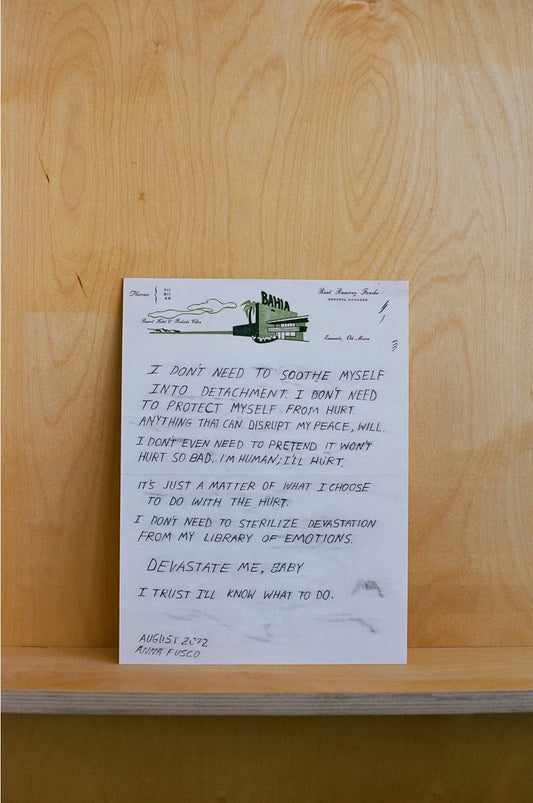 Phones
711
811
48
BAHIA
Raul Ramirez Funcke
GENERAL MANAGER
Resort Hotel & Private Villas
Ensenada, Old Mexico
I DON'T NEED TO SOOTHE MYSELF
INTO DETACHMENT. I DON'T NEED
TO PROTECT MYSELF FROM HURT.
ANYTHING THAT CAN DISRUPT MY PEACE, WILL.
I DON'T EVEN NEED TO PRETEND IT WON'T
HURT SO BAD. I'M HUMAN; I'LL HURT.
IT'S JUST A MATTER OF WHAT I CHOOSE
TO DO WITH THE HURT.
I DON'T NEED TO STERILIZE DEVASTATION
FROM MY LIBRARY OF EMOTIONS.
DEVASTATE ME, BABY
I TRUST I'LL KNOW WHAT TO DO.
AUGUST 2022
ANNA FUSCO